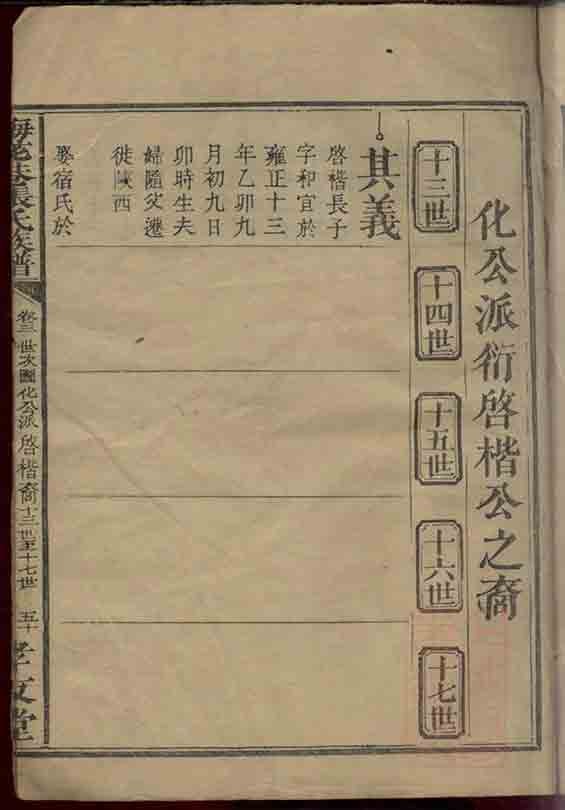 化公派衍啓楷公之裔
十三世
十四世
十五世
十六世
十七世
其義
啓楷長子
字和宜於
雍正十三
年乙卯九
月初九日
卯時生夫
婦隨父遷
徙陝西
娶宿氏於
氏族譜
卷三 世次圖化公派 啓楷裔 十三世至十七世 五十
堂